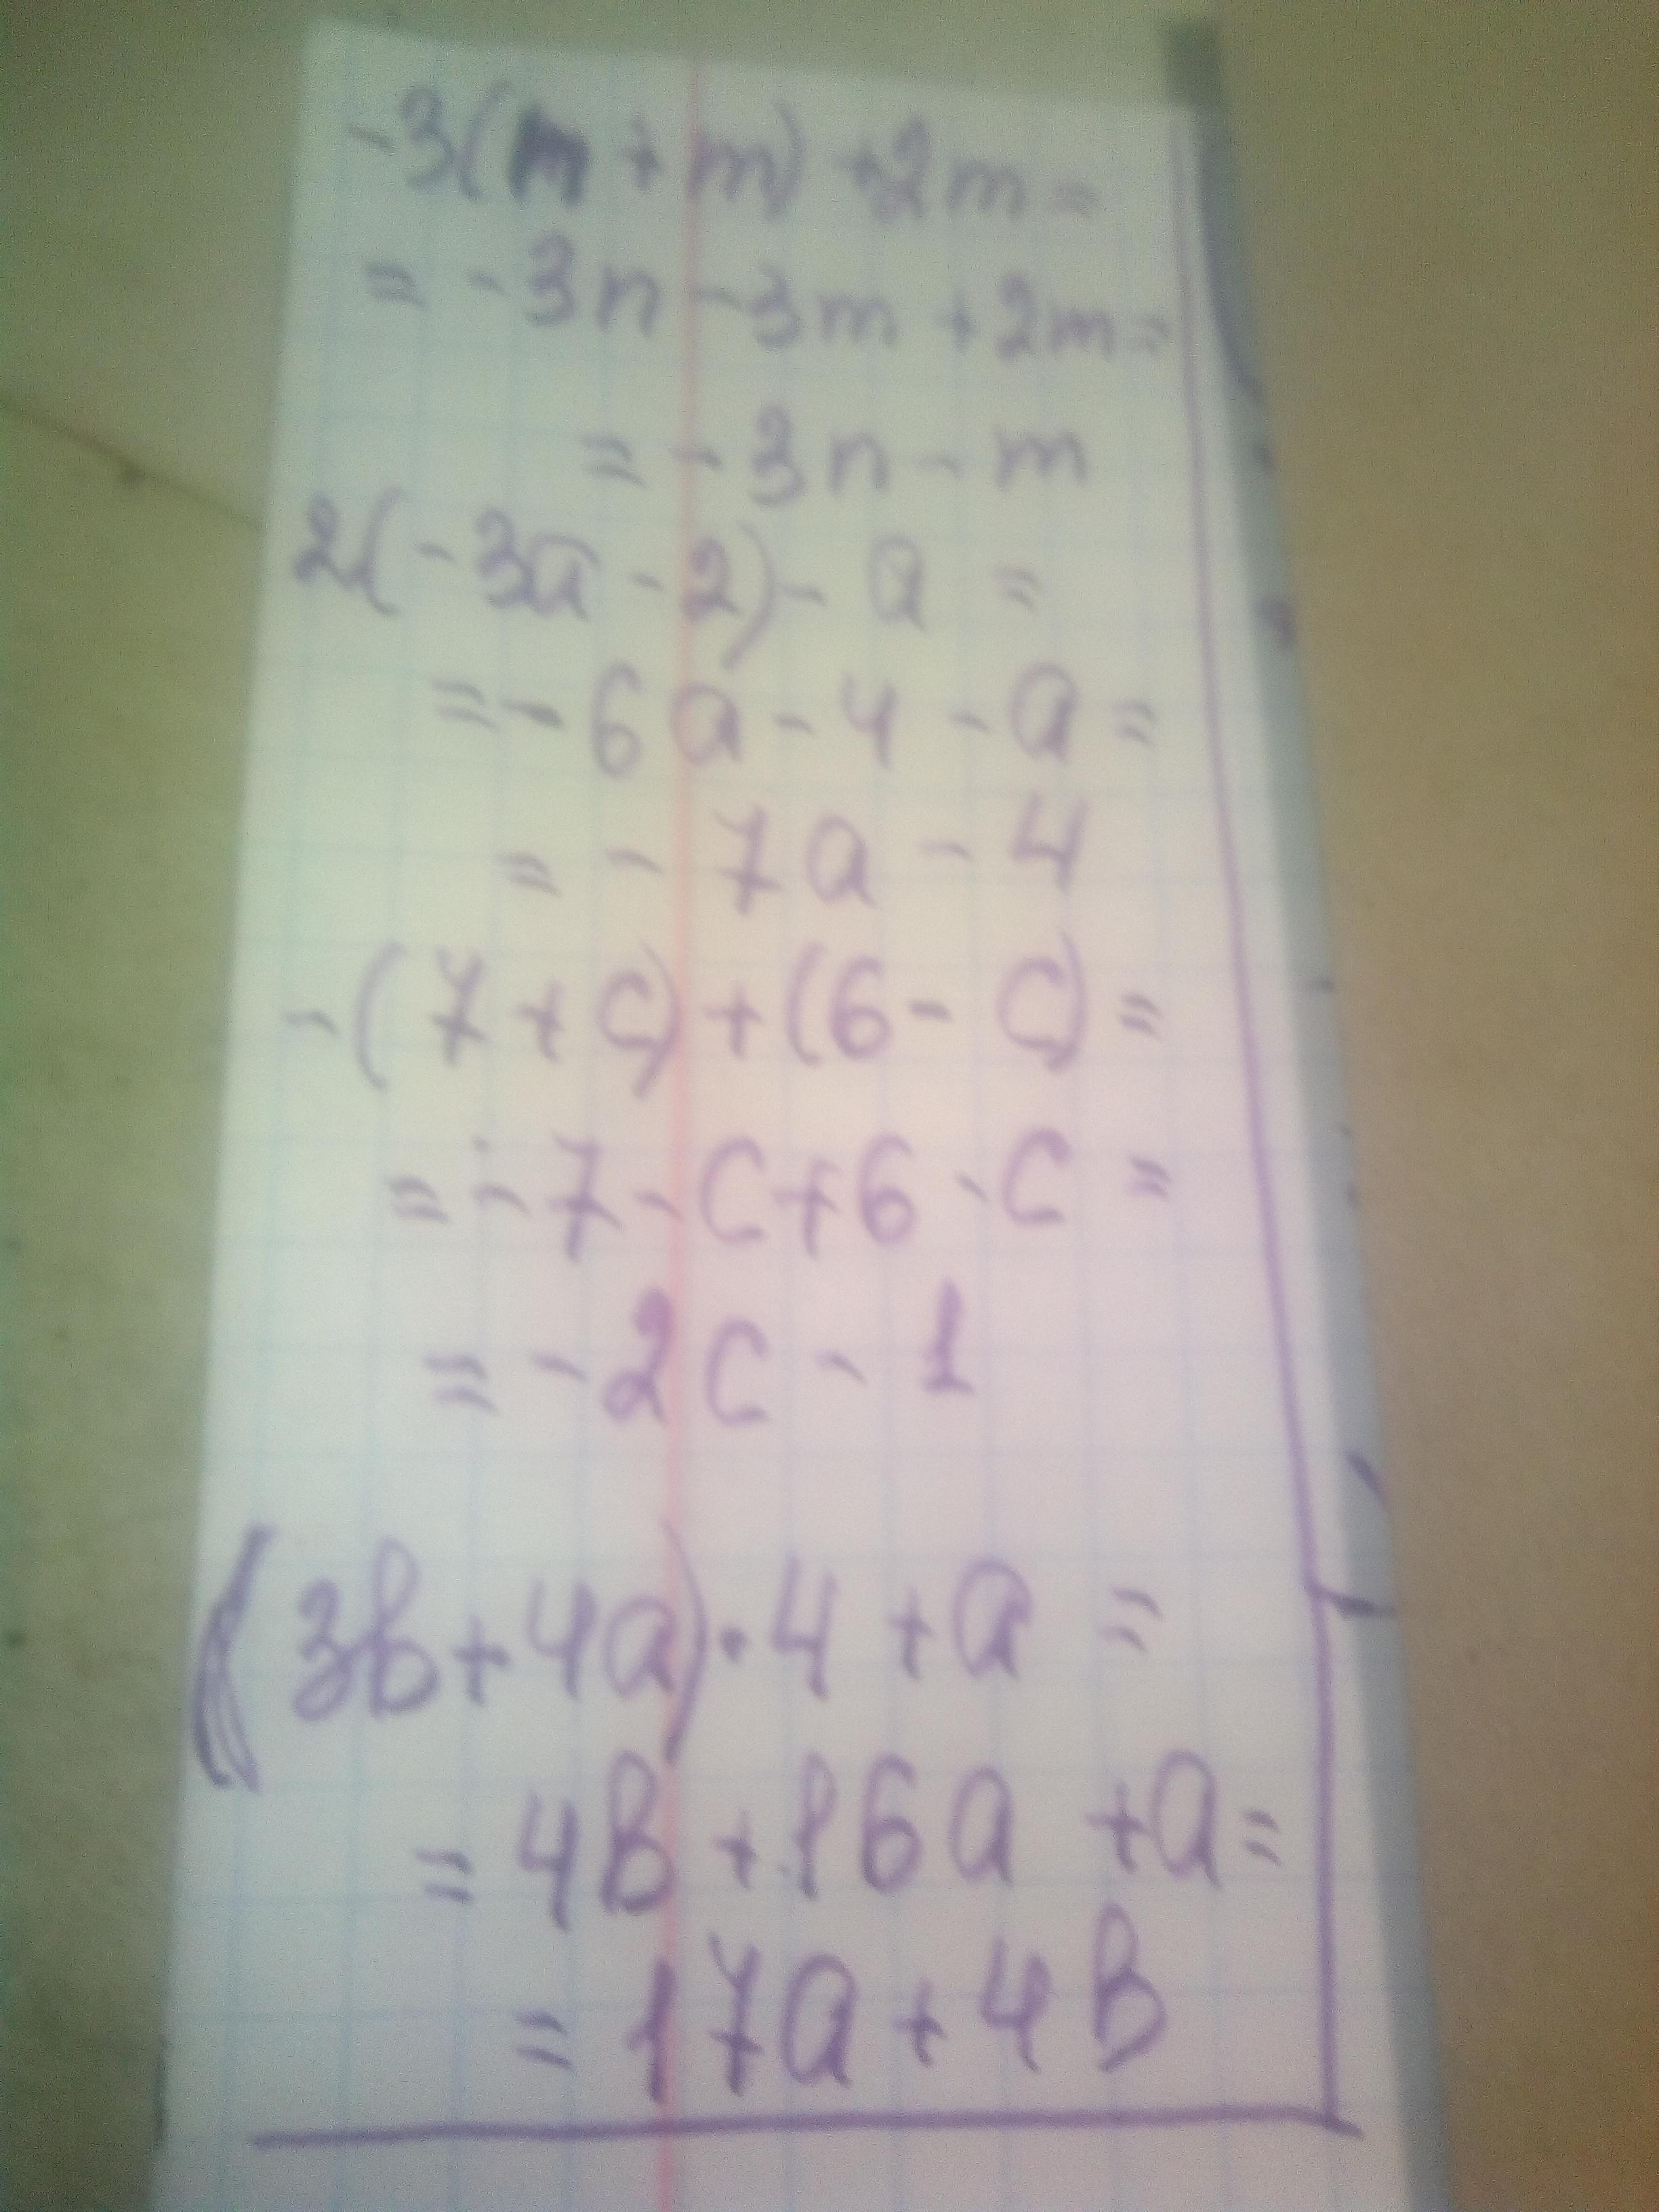 -3(n + m) + 2m =
= - 3n - 3m + 2m =
= - 3n - m
2(-3a - 2) - a =
= - 6a - 4 - a =
= - 7a - 4
-(7 + c) + (6 - c) =
= - 7 - c + 6 - c =
= - 2c - 1
(3b + 4a) · 4 + a =
= 4b + 16a + a =
= 17a + 4b